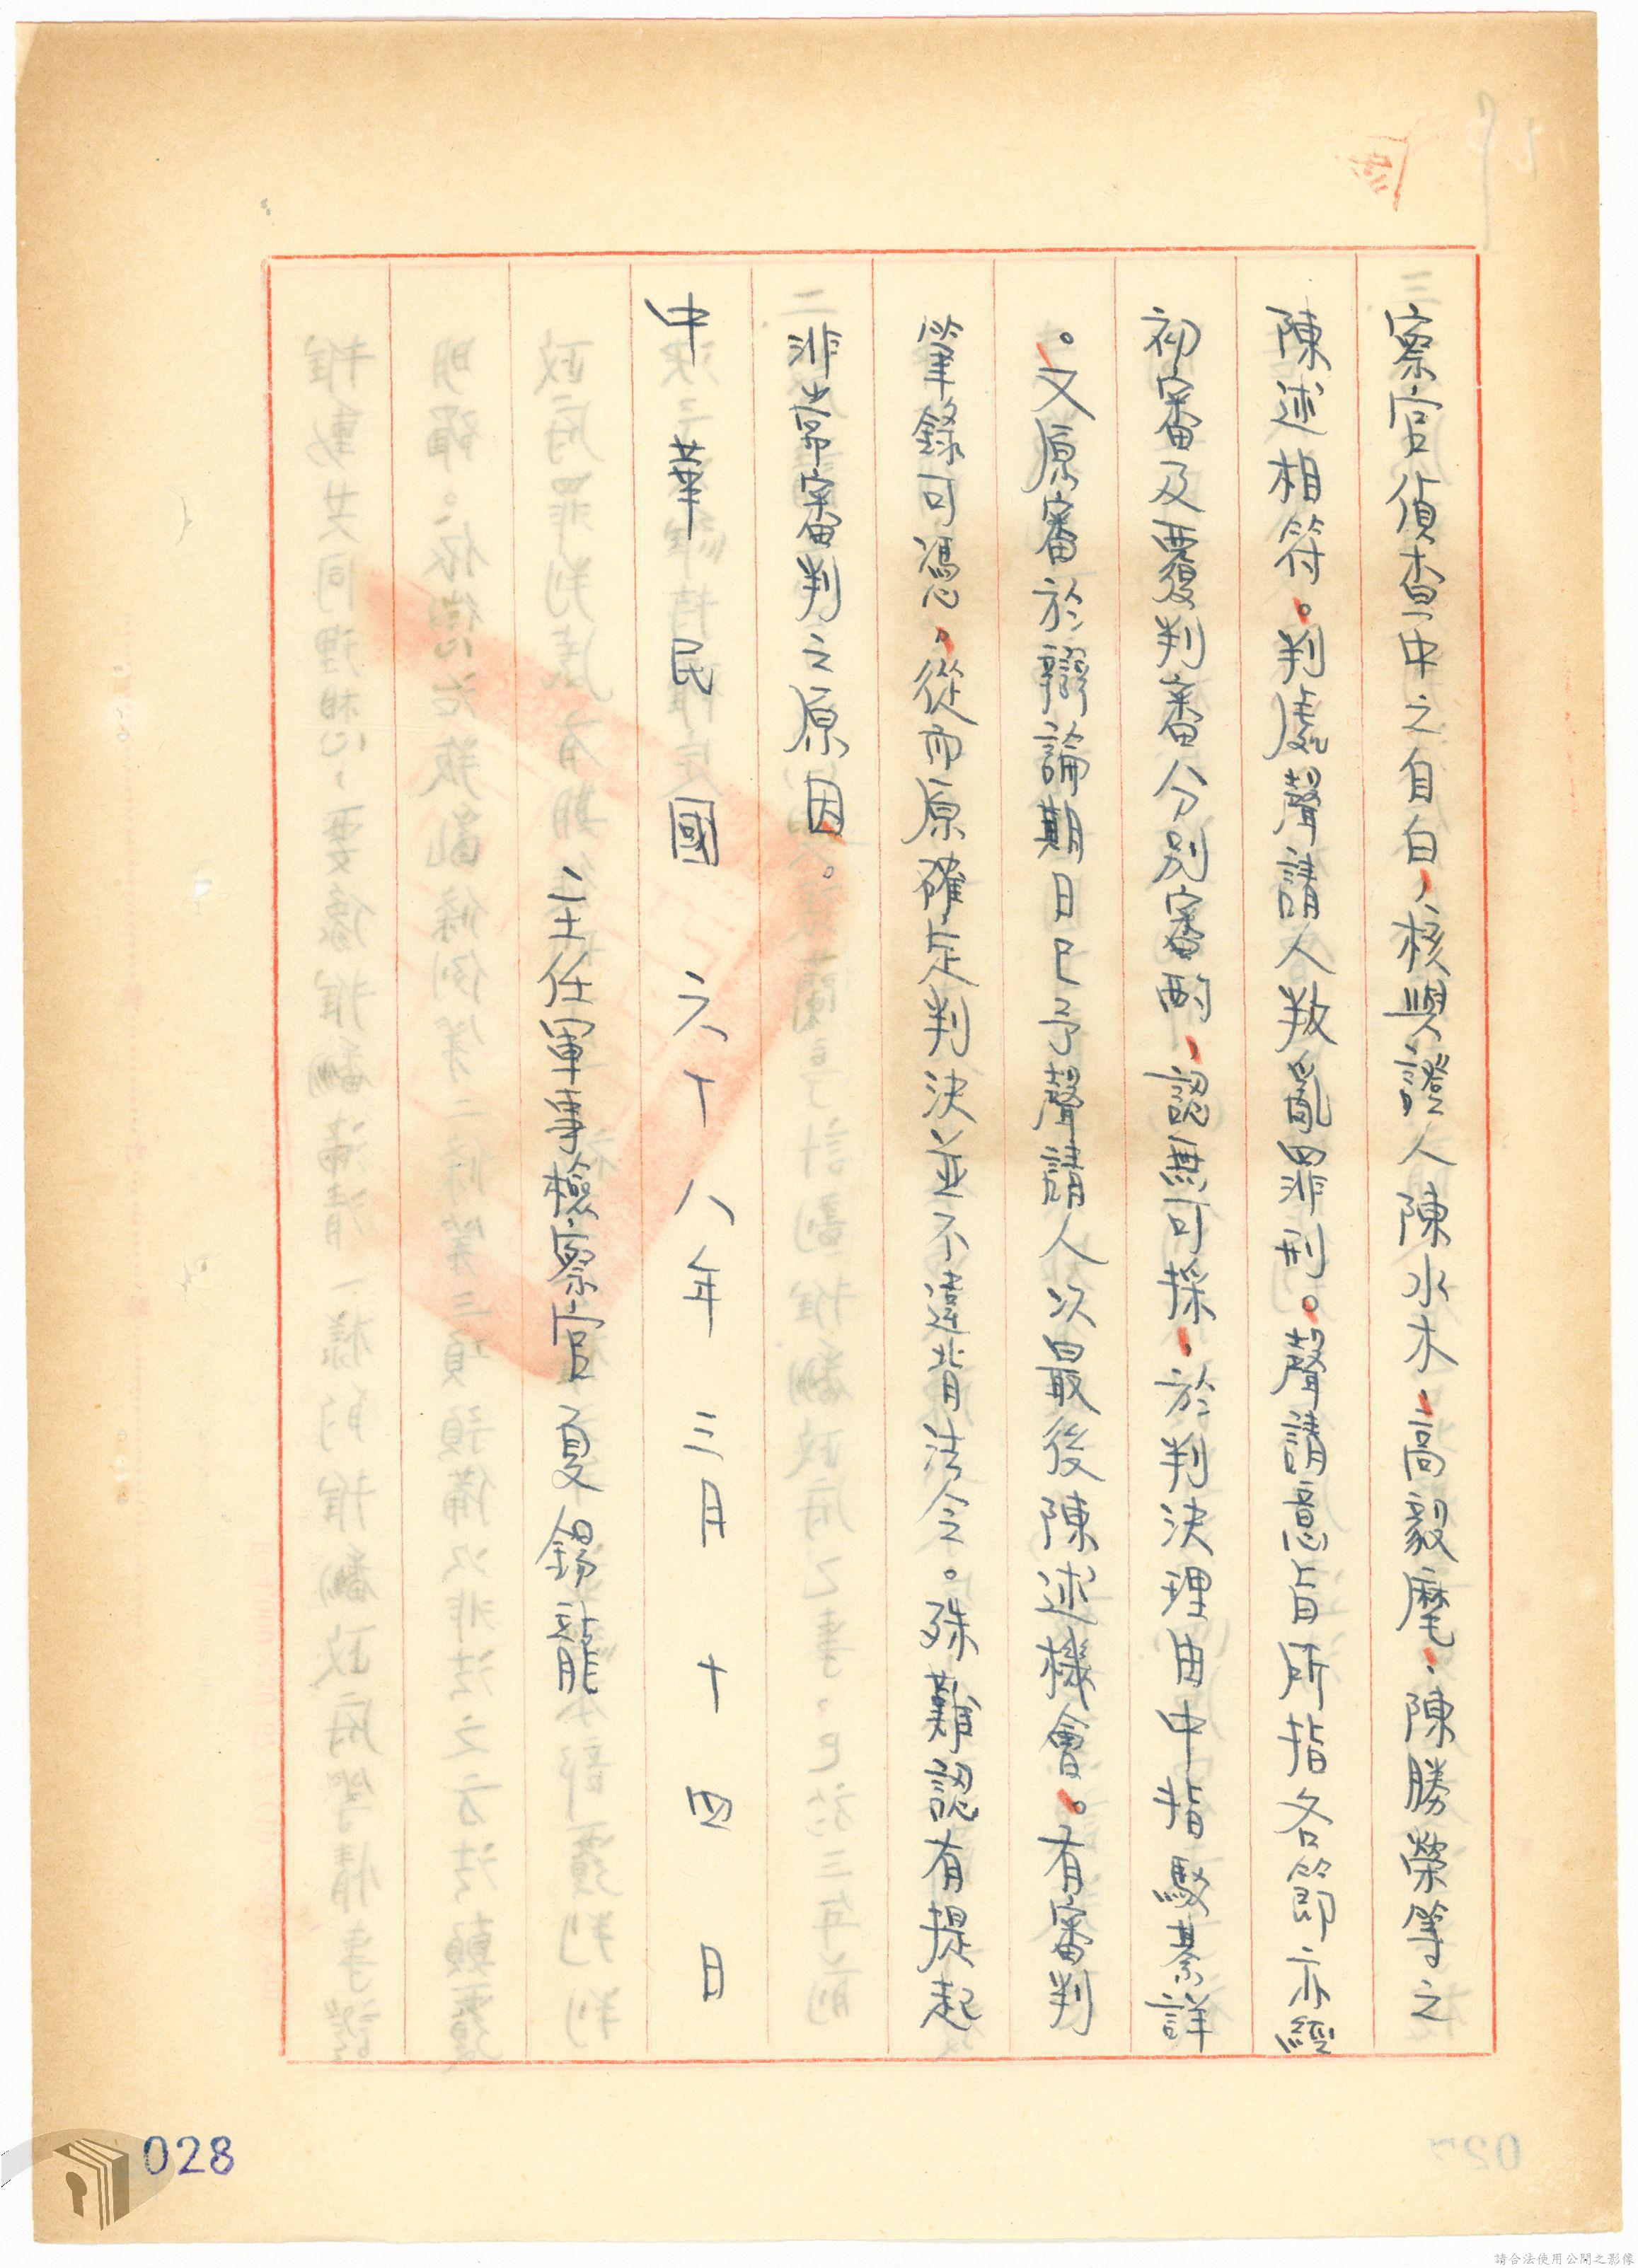 察官偵查中之自白，核與證人陳水木，高毅麾，陳勝榮等之
陳述相符。判處聲請人叛亂罪刑。聲請意旨所指各節亦經
初審及覆判審分別審酌，認無可採，於判決理由中指駁綦詳
。又原審於辯論期日已予聲請人以最後陳述機會。有審判
筆錄可憑，從而原確定判決並不違背法令。殊難認有提起
非常審判之原因。
中華民國六十八年三月十四日
主任軍事檢察官夏錫龍
028
請合法使用公開之影像